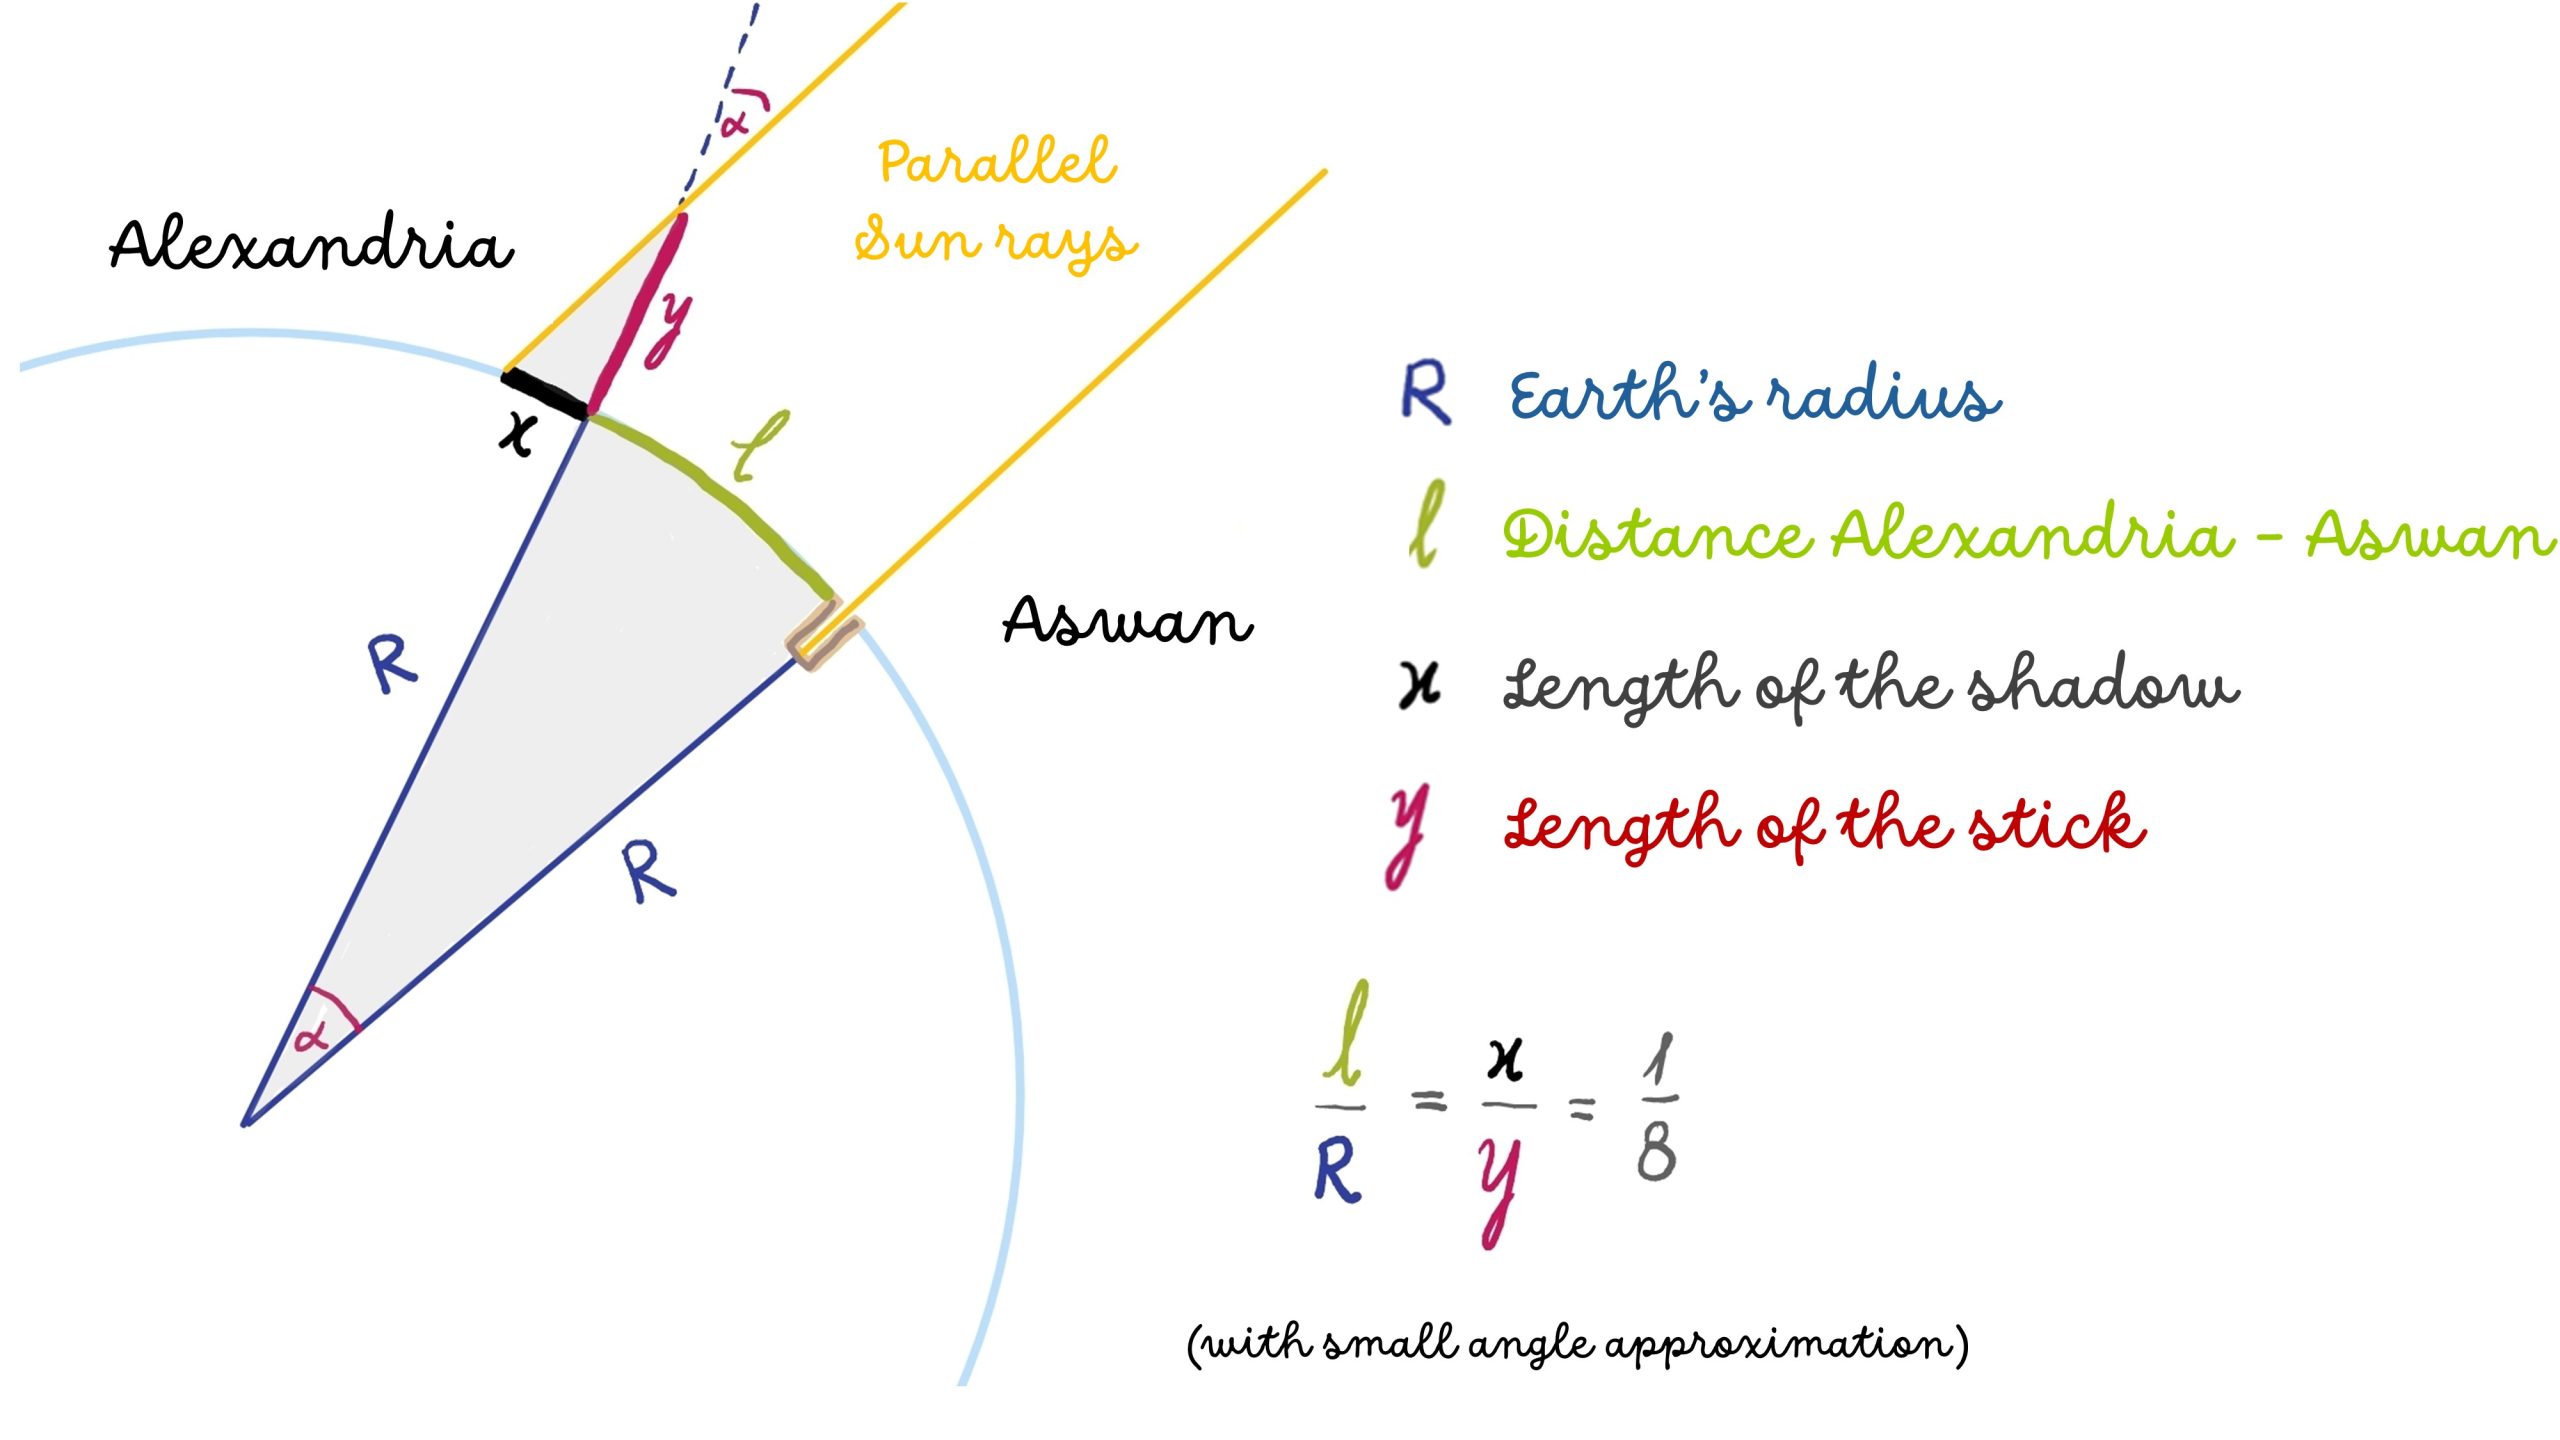 α
Parallel
Sun rays
Alexandria
y
x
l
R
Aswan
R
α
R Earth's radius
l Distance Alexandria - Aswan
x Length of the shadow
y Length of the stick
l/R = x/y = 1/8
(with small angle approximation)